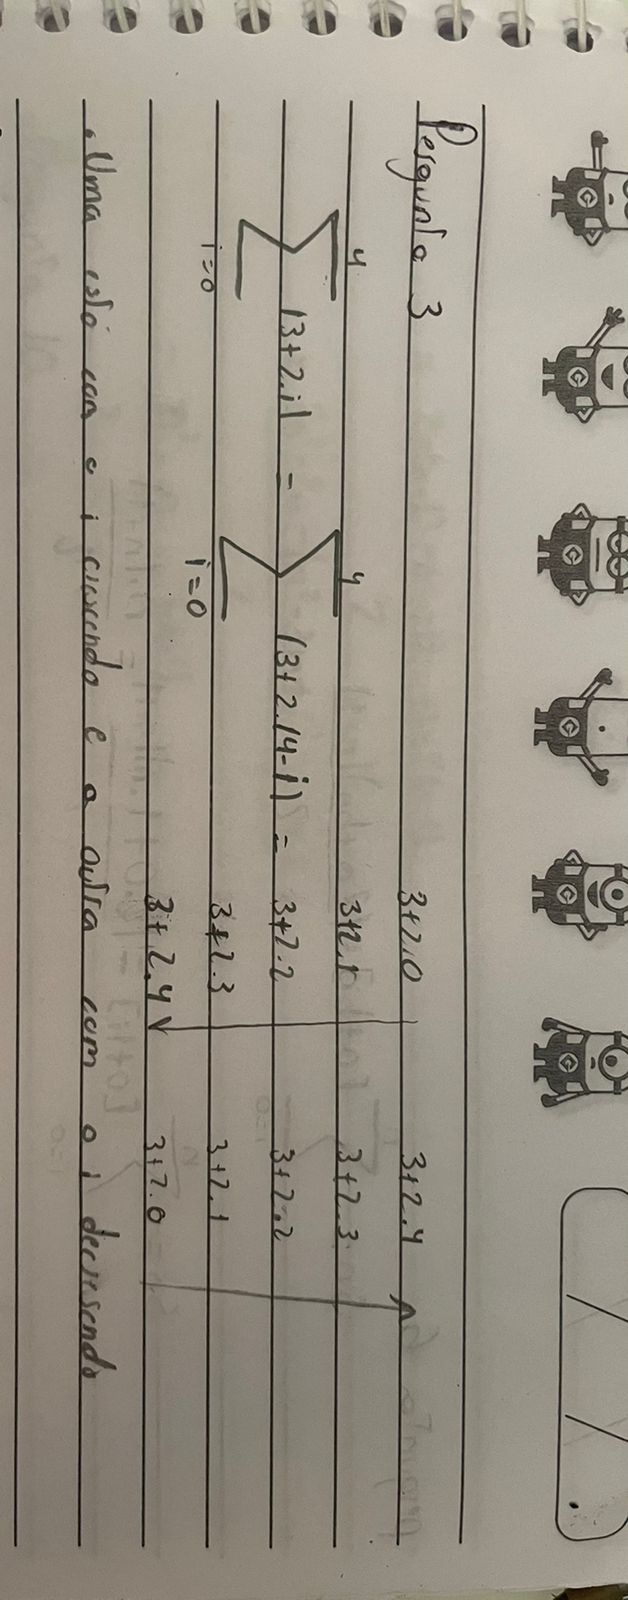 Pergunta 3
4 4 3+2.0 3+2.4
∑ (3+2.i) = ∑ (3+2.(4-i) = 3+2.1 3+2.3
i=0 i=0 3+2.2 3+2.2
3+2.3 3+2.1
3+2.4 3+2.0
. Uma está com o i crescendo e a outra com o i decrescendo